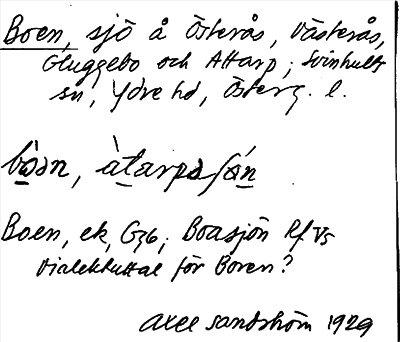 Boen, sjö å Österås, Västerås,
Gluggebo och Attarp; Svinhults
sn, Ydre hd, Österg. l.
bòən, àtarpsʃön
Boen, ek, G36; Boasjön Rf Vs
Dialektuttal för Boren?
Axel Sandström 1929